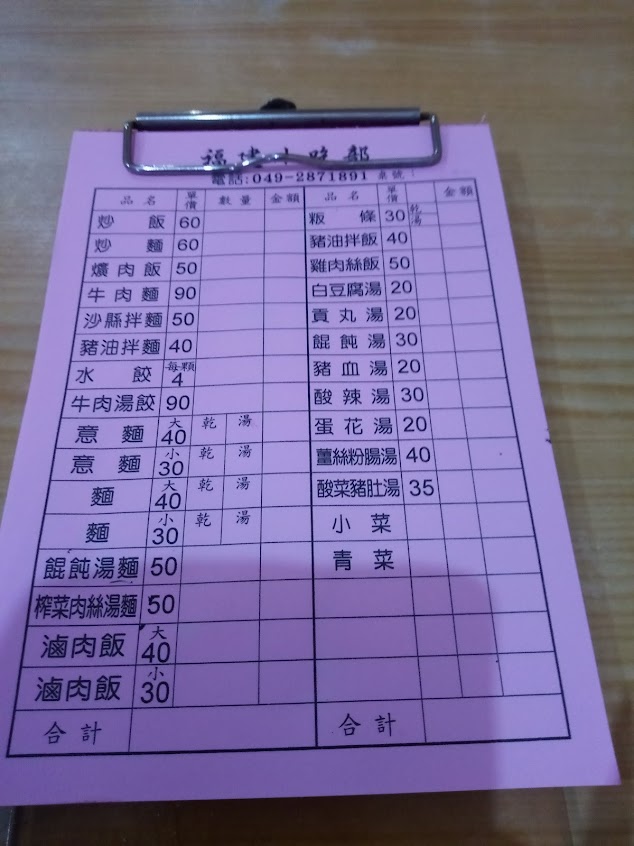 福建小吃部
電話:049-2871891 桌號:
品名 單價 數量 金額
炒飯 60
炒麵 60
爌肉飯 50
牛肉麵 90
沙縣拌麵 50
豬油拌麵 40
水餃 每顆 4
牛肉湯餃 90
意麵 大 40 乾 湯
意麵 小 30 乾 湯
麵 大 40 乾 湯
麵 小 30 乾 湯
餛飩湯麵 50
榨菜肉絲湯麵 50
滷肉飯 大 40
滷肉飯 小 30
合計
品名 單價 金額
粄條 30 乾 湯
豬油拌飯 40
雞肉絲飯 50
白豆腐湯 20
貢丸湯 20
餛飩湯 30
豬血湯 20
酸辣湯 30
蛋花湯 20
薑絲粉腸湯 40
酸菜豬肚湯 35
小菜
青菜
合計